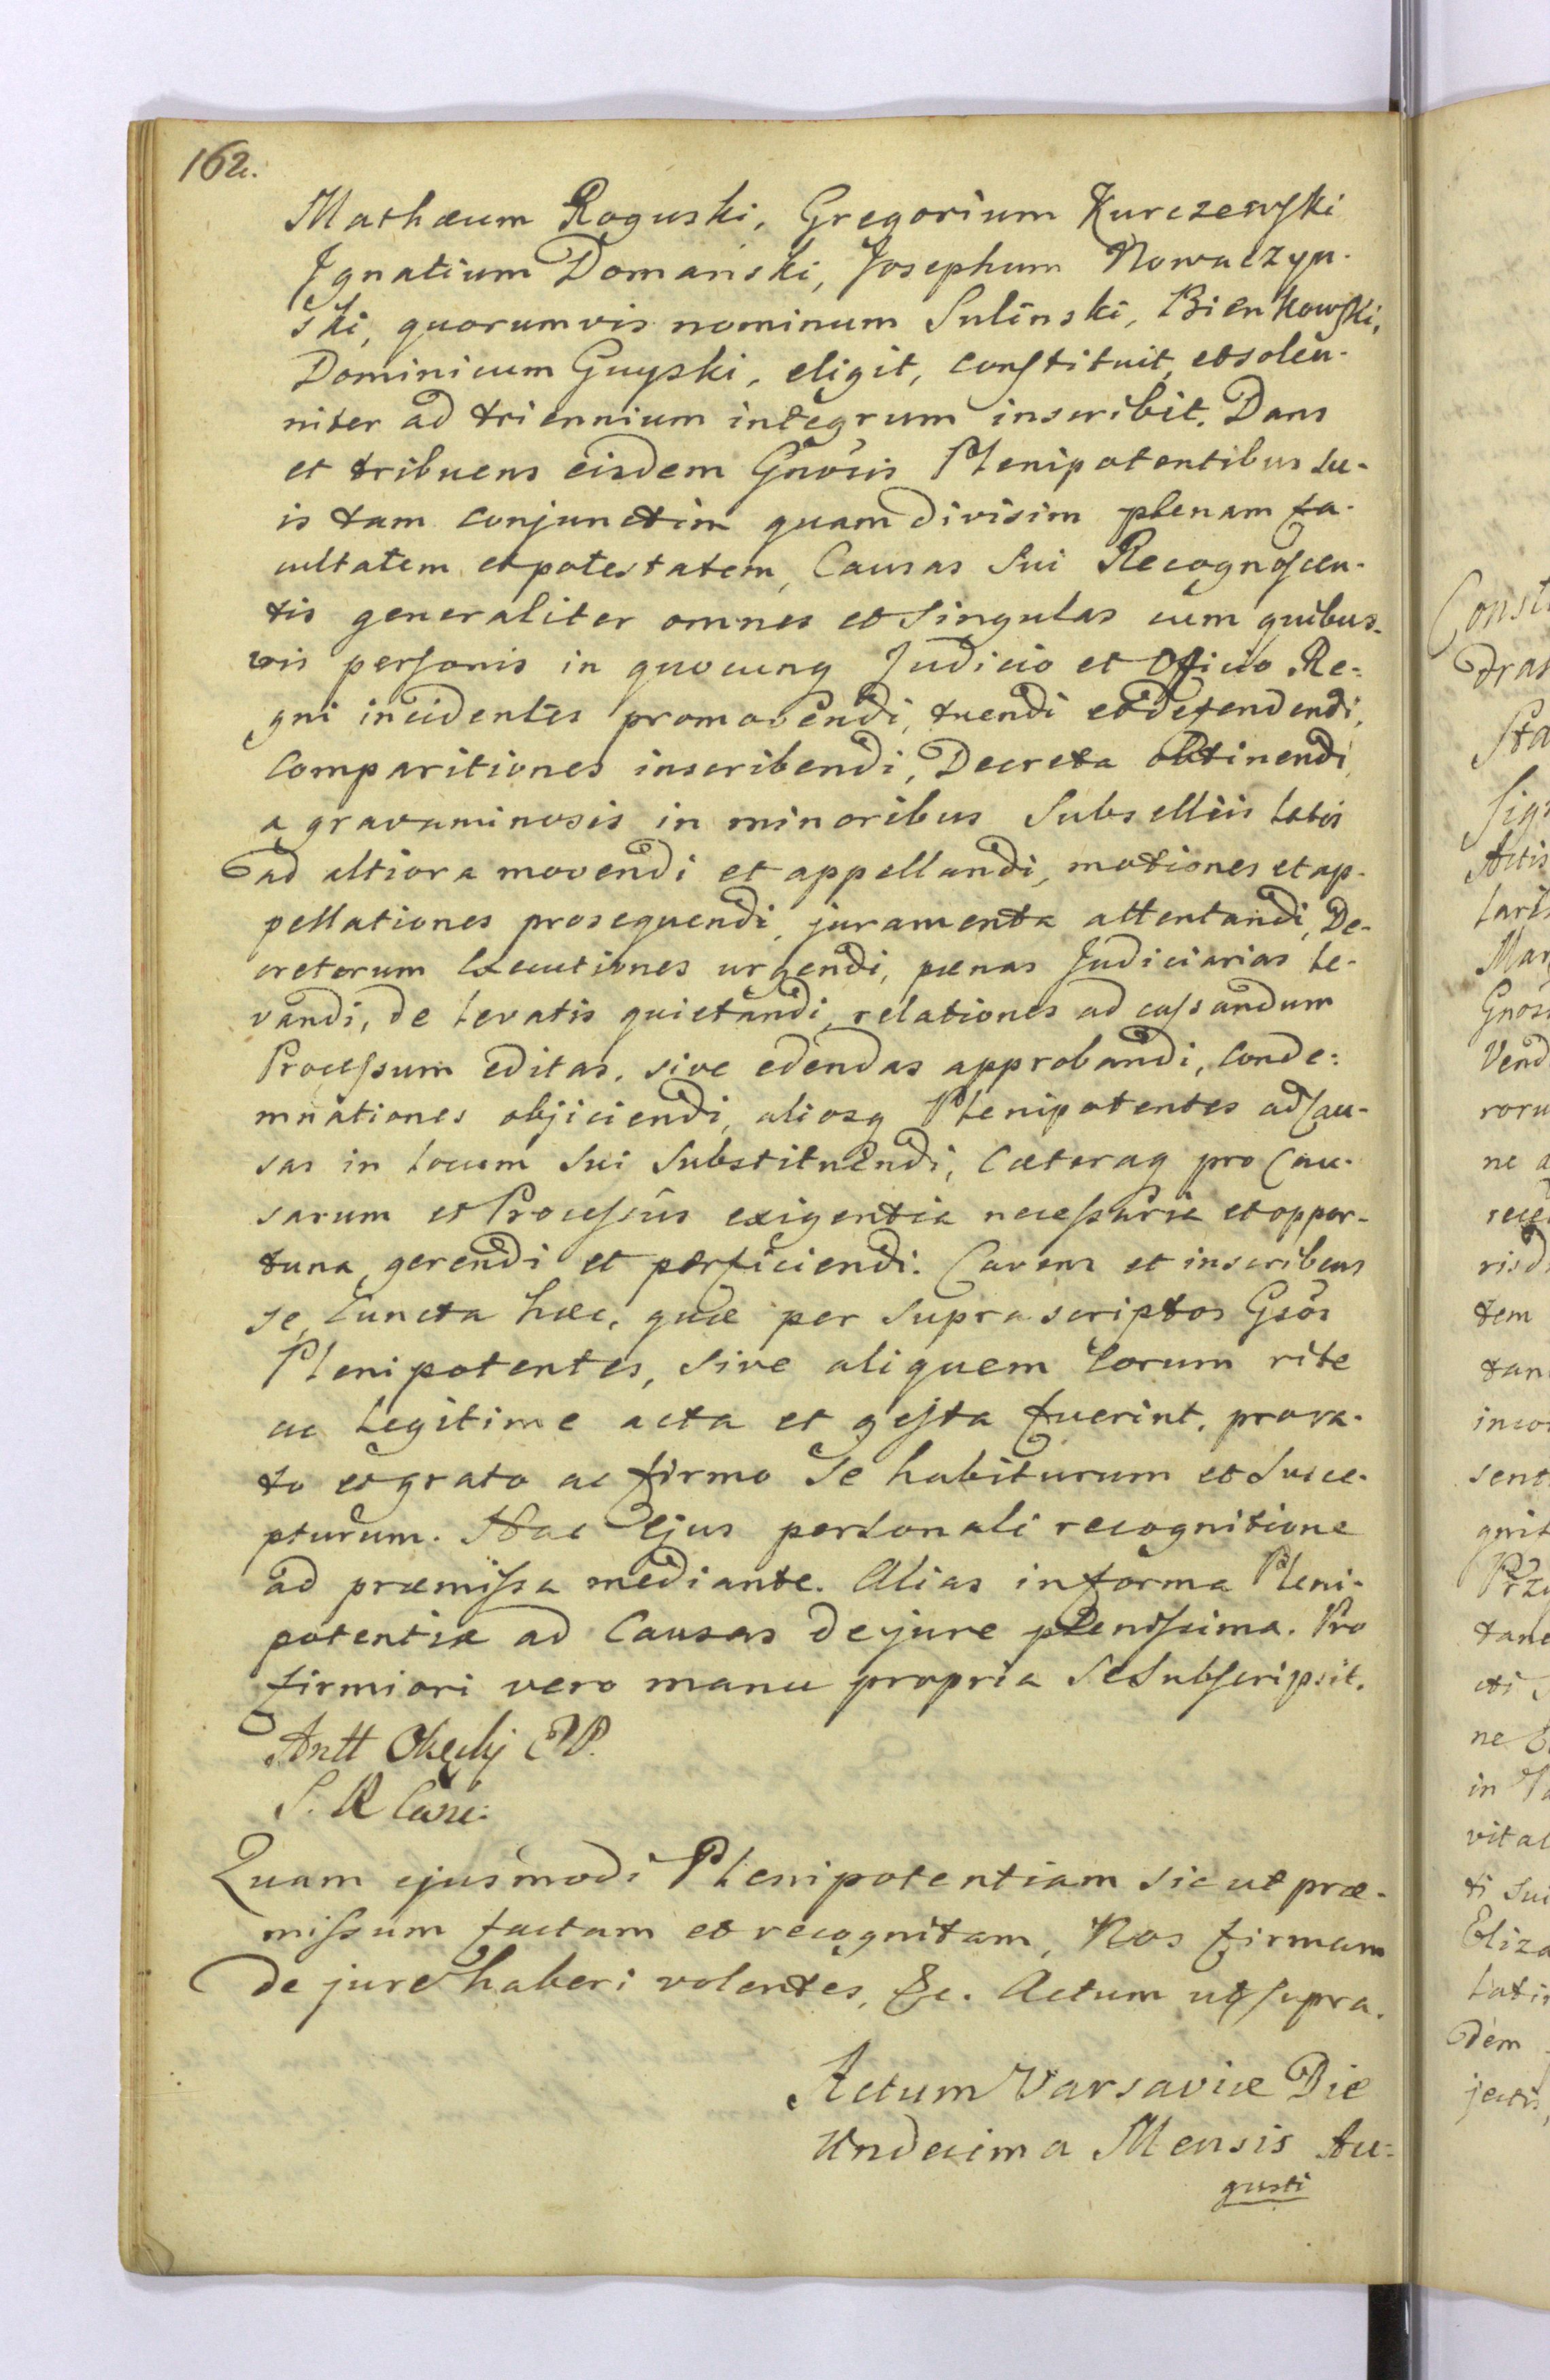 162.
Mathæum Roguski, Gregorium Kurczewski
Ignatium Domański, Josephum Nowaczyn-
ski, quorumvis nominum Sulinski, Bienkowski,
Dominicum Guyski, eligit, constituit, et solen-
niter ad triennium integrum inscribit. Dans
et tribuens eisdem Gnosis Plenipotentibus su-
is tam conjunctim quam divisim plenam fa-
cultatem et potestatem, Causas sui Recognoscen-
tis generaliter omnes et singulas cum quibus-
vis personis in quocunq Judicio et Officio Re-
gni incidentes promovendi, tuendi et defendendi,
comparitiones inscribendi, Decreta obtinendi,
a gravaminosis in minoribus Subselliis latis
ad altiora movendi et appellandi, motiones et ap-
pellationes prosequendi, juramenta attentandi, De-
cretorum Executiones urgendi, pœnas Judiciarias le-
vandi, de levatis quietandi, relationes ad cassandum
Processum editas, sive edendas approbandi, conde-
mnationes objiciendi, aliosq Plenipotentes ad Cau-
sas in locum sui Substituendi, Cæteraq pro Cau-
sarum et Processus exigentia necessaria et oppor-
tuna, gerendi et perficiendi. Cavens et inscribens
se, cuncta hæc, quæ per suprascriptos Gsos
Plenipotentes, sive aliquem eorum rite
ac legitime acta et gesta fuerint, pro ra-
to et grato ac firmo se habiturum et susce-
pturum. Hac Ejus personali recognitione
ad præmissa mediante. Alias in forma Pleni-
potentiæ ad Causas de jure plenissima. Pro
firmiori vero manu propria se subscripsit.
Antt Okęckj
S. R
Quam ejusmodi Plenipotentiam sic ut præ-
missum factam et recognitam, Nos firmam
de jure haberi volentes, &c. Actum ut supra.
Actum Varsaviæ Die
Undecima Mensis Au-
gusti
Const